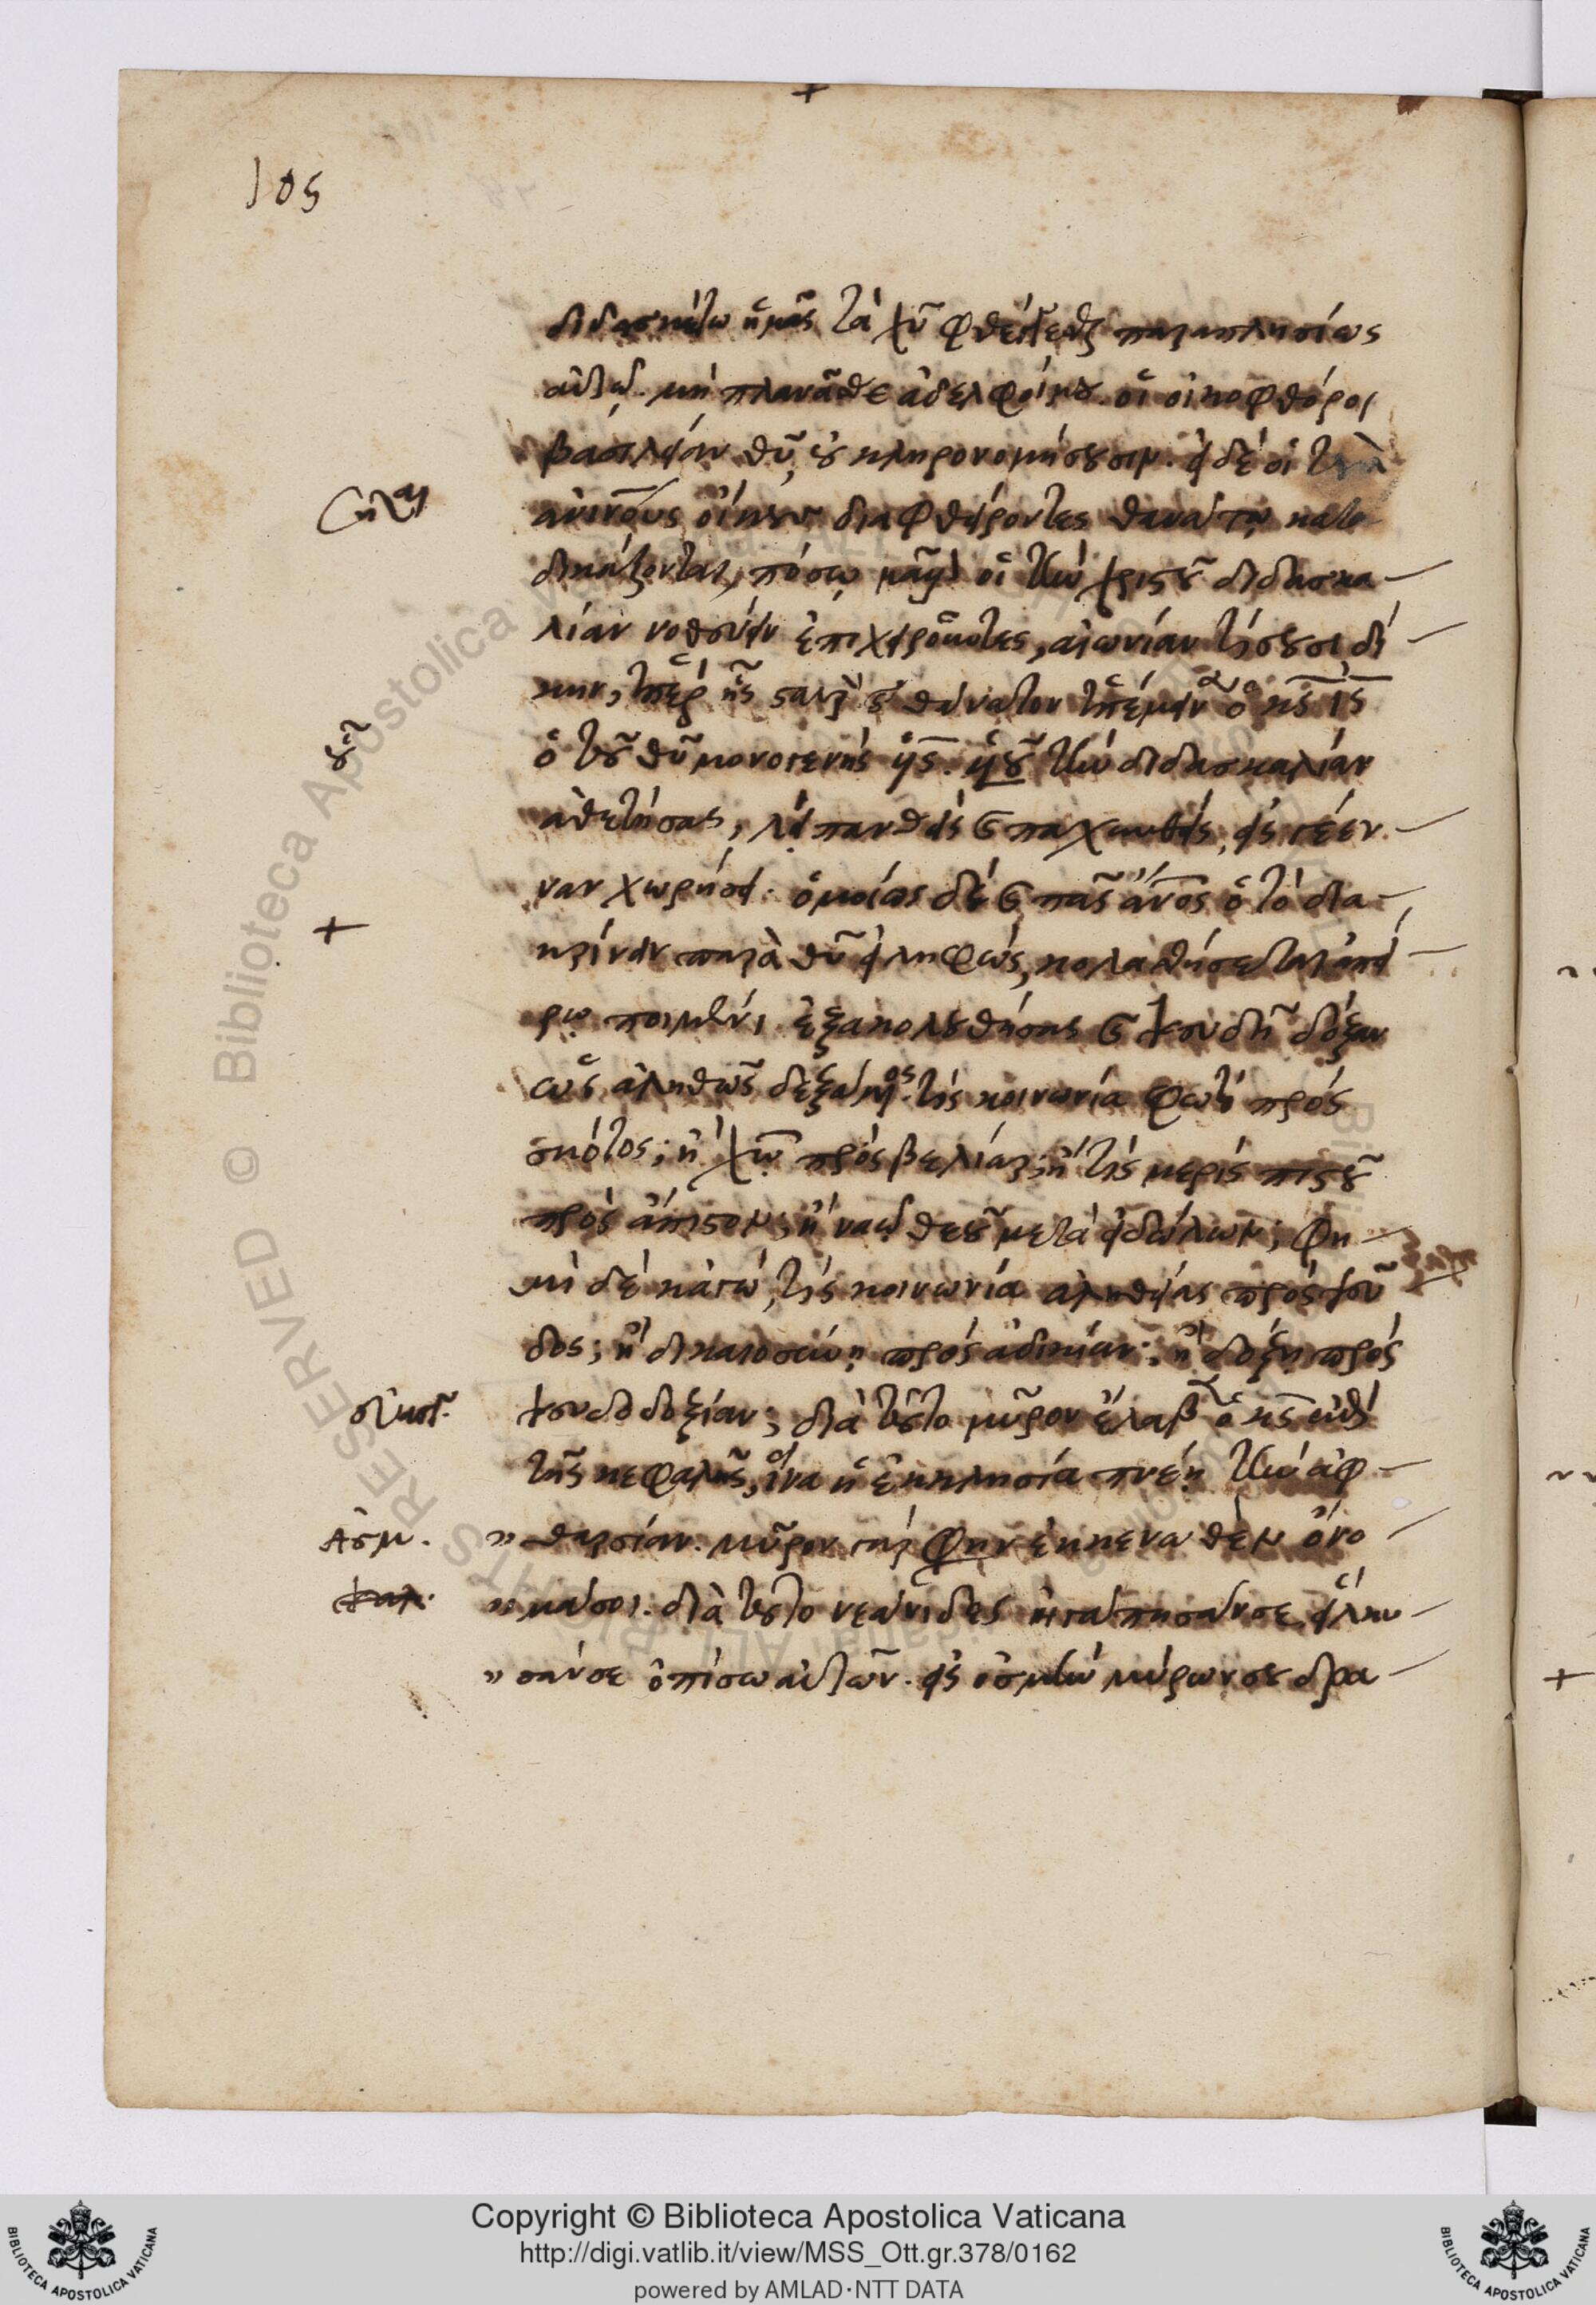 105
διδασκέτω ἡμᾶς τὰ χυ̅ φθέγγεσθαι παραπλησίως
αὐτῷ. μὴ πλανᾶσθε ἀδελφοί μου. οἱ οἰκοφθόροι
βασιλείαν θυ̅, οὐ κληρονομήσουσιν. εἰ δὲ οἱ τοὺς
ἀνίνους οἴκους διαφθείροντες θανάτῳ κατα
δικάζονται, πόσῳ μᾶλλον οἱ τὴν χριστοῦ διδασκα
λίαν νοθεύειν ἐπιχειροῦντες, αἰωνίαν τίσουσι δί
κην, ὑπὲρ ἧς σταυρὸν καὶ θάνατον ὑπέμεινεν ὁ κς̅ ις̅
ὁ τοῦ θυ̅ μονογενὴς υἱς̅. οὗ τὴν διδασκαλίαν
ἀθετήσας, λιπανθεὶς καὶ παχυνθεὶς, εἰς γέεν
ναν χωρήσει. ὁμοίως δὲ καὶ πᾶς ἄνος̅ ὁ τὸ δια
κρίνειν παρὰ θυ̅ εἰληφὼς, κολασθήσεται ἀπεί
ρῳ ποιμένι ἐξακολουθήσας καὶ ψευδῆ δόξαν
ὡς ἀληθῶς δεξάμενος. τίς κοινωνία φωτὶ πρὸς
σκότος; ἢ χω̅ πρὸς βελίαρ; ἢ τίς μερὶς πιστοῦ
πρὸς ἄπιστον; ἢ ναῷ θεοῦ μετὰ εἰδώλων; φη
μὶ δὲ κἀγώ, τίς κοινωνία ἀληθείας πρὸς ψεῦ
δος; ἢ δικαιοσύνη πρὸς ἀδικίαν; ἢ δόξη πρὸς
ψευδοδοξίαν; διὰ τοῦτο μῦρον ἔλαβεν ὁ κς̅ ἐπὶ
τῆς κεφαλῆς, ἵνα ἡ ἐκκλησία πνέῃ τὴν ἀφ
Ἀσμ. » θαρσίαν. μῦρον γάρ φησιν ἐκκενωθὲν ὄνο
» μάσοι. διὰ τοῦτο νεάνιδες ἠγάπησάν σε, εἵλκυ
» σάν σε ὀπίσω αὐτῶν. εἰς ὀσμὴν μύρων σου δρα
Copyright © Biblioteca Apostolica Vaticana
http://digi.vatlib.it/view/MSS_Ott.gr.378/0162
powered by AMLAD·NTT DATA